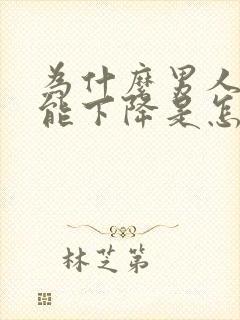 为什麽男人
能下降是怎
林芝第